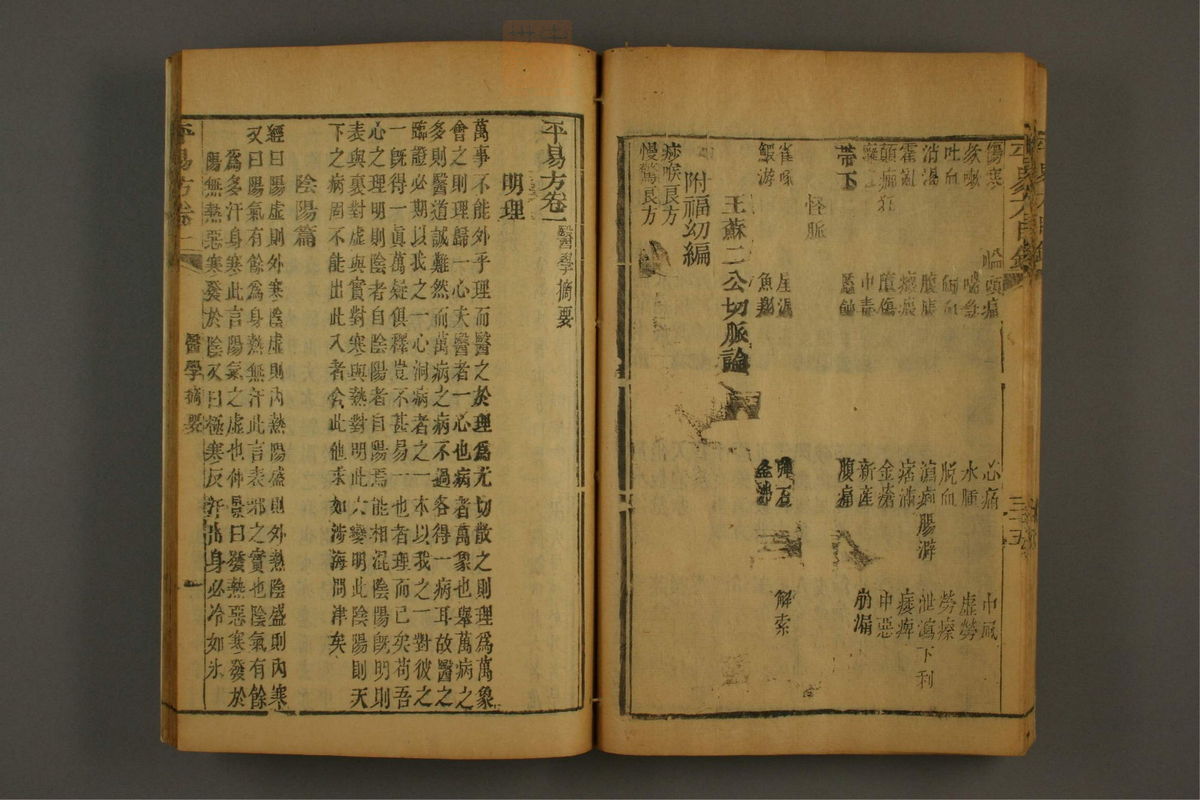 傷寒 頭痛 心痛 中風
咳嗽 喘急 水腫 虛勞
吐血 衄血 脫血 勞瘵
消渴 腸澼 泄瀉下利
霍亂 痞滿 痿痺
顛癇狂 金瘡 中惡
中毒 新產
帶下 腹痛 崩漏
怪脈
雀啄 屋漏 彈石 解索
鰕游 魚翔 釜沸
王蘇二公切脈論
附福幼編
痧喉良方
慢驚良方
平易方卷一 醫學摘要
明理
萬事不能外乎理而醫之於理為尤切散之則理為萬象
會之則理歸一心夫醫者一心也病者萬象也舉萬病之
多則醫道誠難然而萬病之病不過各得一病耳故醫之
臨證必期以我之一心洞病者之一本以我之一對彼之
一既得一真萬疑俱釋豈不甚易一也者理而已矣苟吾
心之理明則陰者自陰陽者自陽焉能相混陰陽既明則
表與裏對虛與實對寒與熱對明此六變明此陰陽則天
下之病固不能出此入者舍此他求如涉海問津矣
陰陽篇
經曰陽虛則外寒陰虛則內熱陽盛則外熱陰盛則內寒
又曰陽氣有餘為身熱無汗此言表邪之實也陰氣有餘
為多汗身寒此言陽氣之虛也仲景曰發熱惡寒發於
陽無熱惡寒發於陰又曰極寒反汗出身必冷如氷
平易方卷一
醫學摘要
一